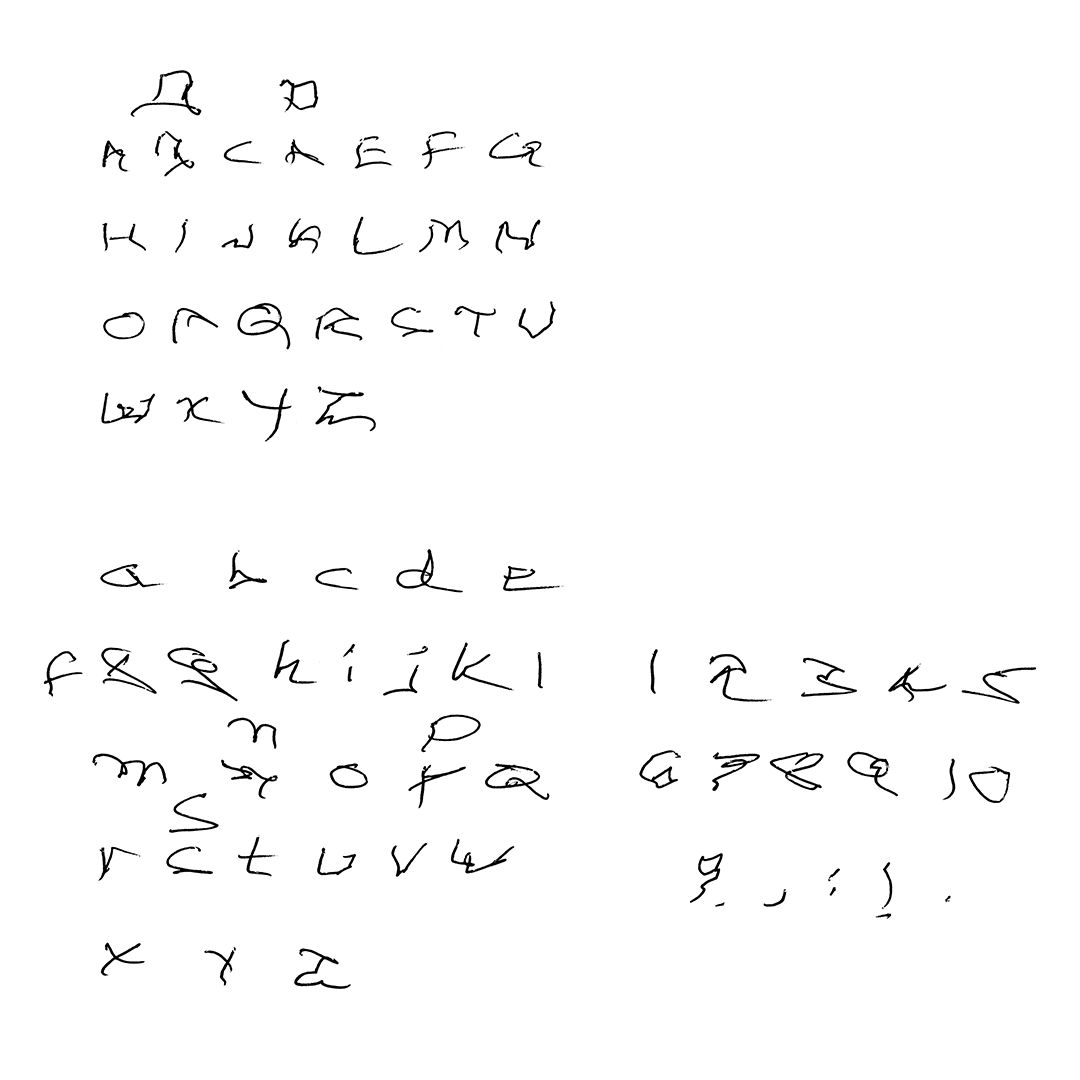 B D
A B C D E F G
H I J K L M N
O P Q R S T U
W X Y Z
a b c d e
f g g h i j k l
n p
m n o p q
s
r s t u v w
x y z
1 2 3 4 5
6 7 8 9 10
? , : ! .